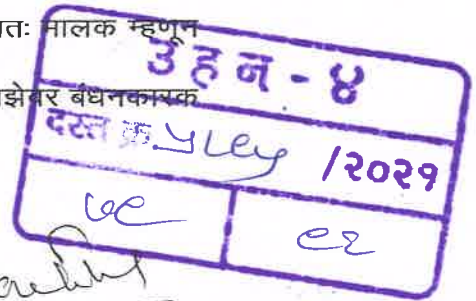 तः मालक म्हणून
झेवर बंधनकारक
उहन - ४
दस्त क्र ५८७५ /२०२१
७८ ९२